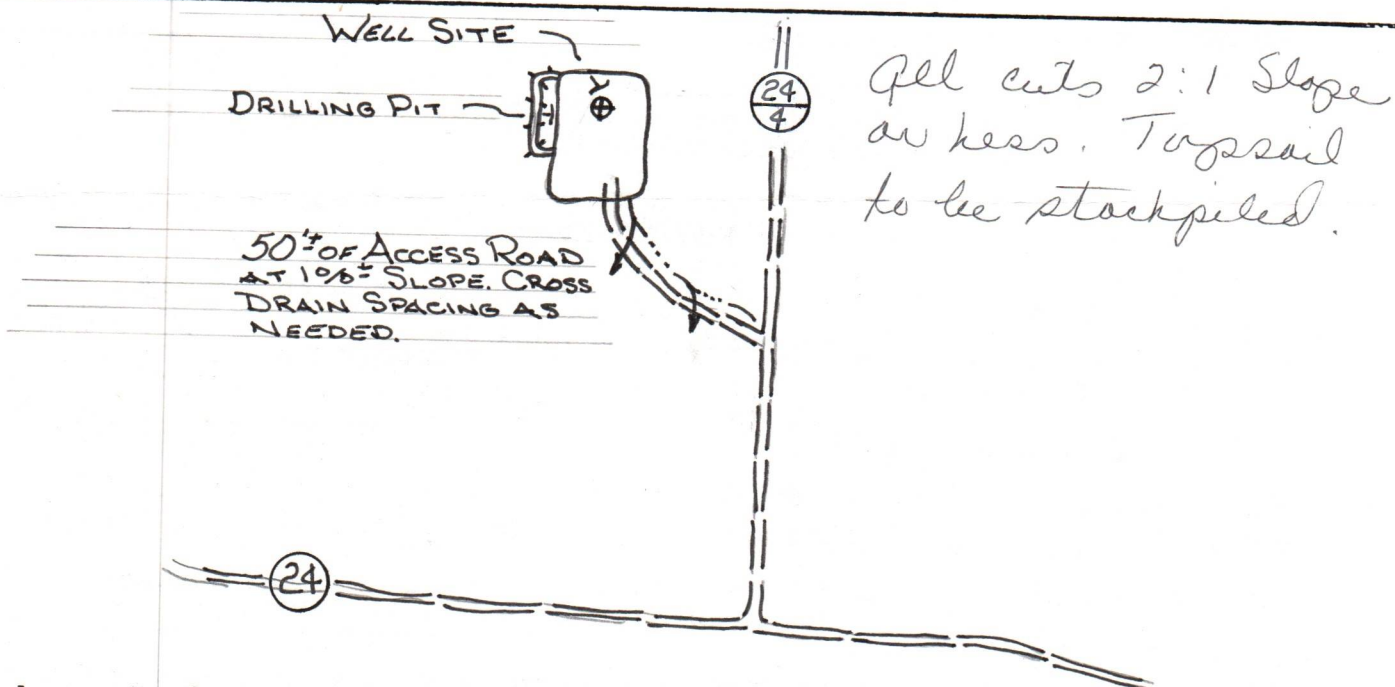 WELL SITE
DRILLING PIT
50'± OF ACCESS ROAD
AT 1%± SLOPE. CROSS
DRAIN SPACING AS
NEEDED.
24
4
All cuts 2:1 Slope
or less. Topsoil
to be stockpiled.
24